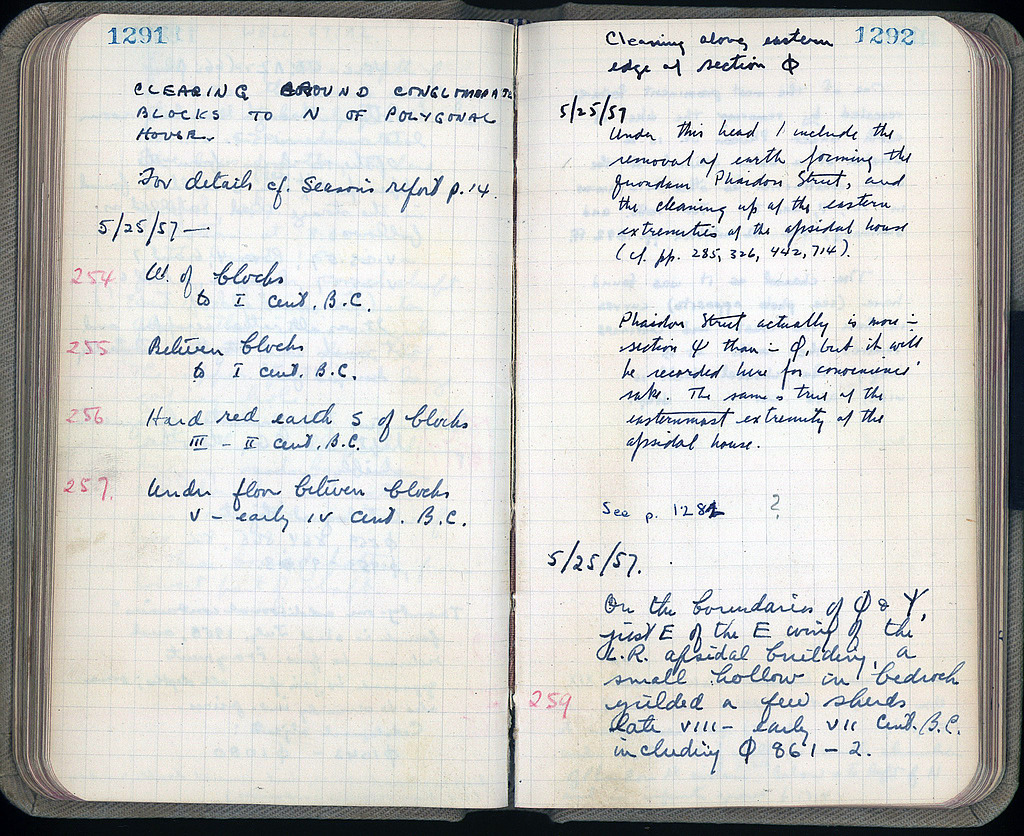 1291
CLEARING AROUND CONGLOMERATE
BLOCKS TO N OF POLYGONAL
HOUSE.
For details cf. Season's report p. 14.
5/25/57 —
254 W. of blocks
to I cent. B.C.
255 Between blocks
to I cent. B.C.
256 Hard red earth S of blocks
III - II cent. B.C.
257. Under floor between blocks
V - early IV cent. B.C.
1292
Cleaning along eastern
edge of section Φ
5/25/57
Under this head I include the
removal of earth forming the
quondam Phaidon Street, and
the cleaning up of the eastern
extremities of the apsidal house
(cf. pp. 285, 326, 442, 714).
Phaidon Street actually is more in
section Ψ than in Φ, but it will
be recorded here for convenience'
sake. The same is true of the
easternmost extremity of the
apsidal house.
See p. 1282 ?
5/25/57.
On the boundaries of Φ & Ψ,
just E of the E wing of the
L.R. apsidal building, a
small hollow in bedrock
259 yielded a few sherds
late VIII - early VII cent. B.C.
including Φ 861 - 2.